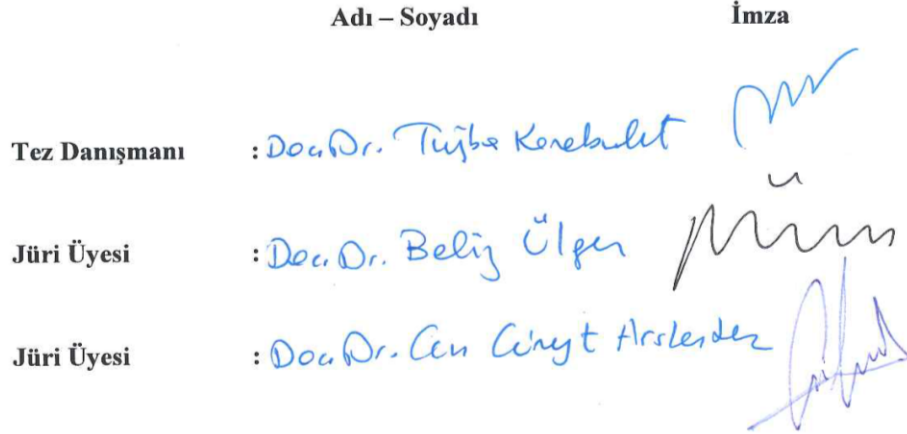 Adı – Soyadı İmza
Tez Danışmanı : Doç. Dr. Tuğba Karabulut
Jüri Üyesi : Doç. Dr. Beliz Ülgen
Jüri Üyesi : Doç. Dr. Can Cüneyt Arslantaş